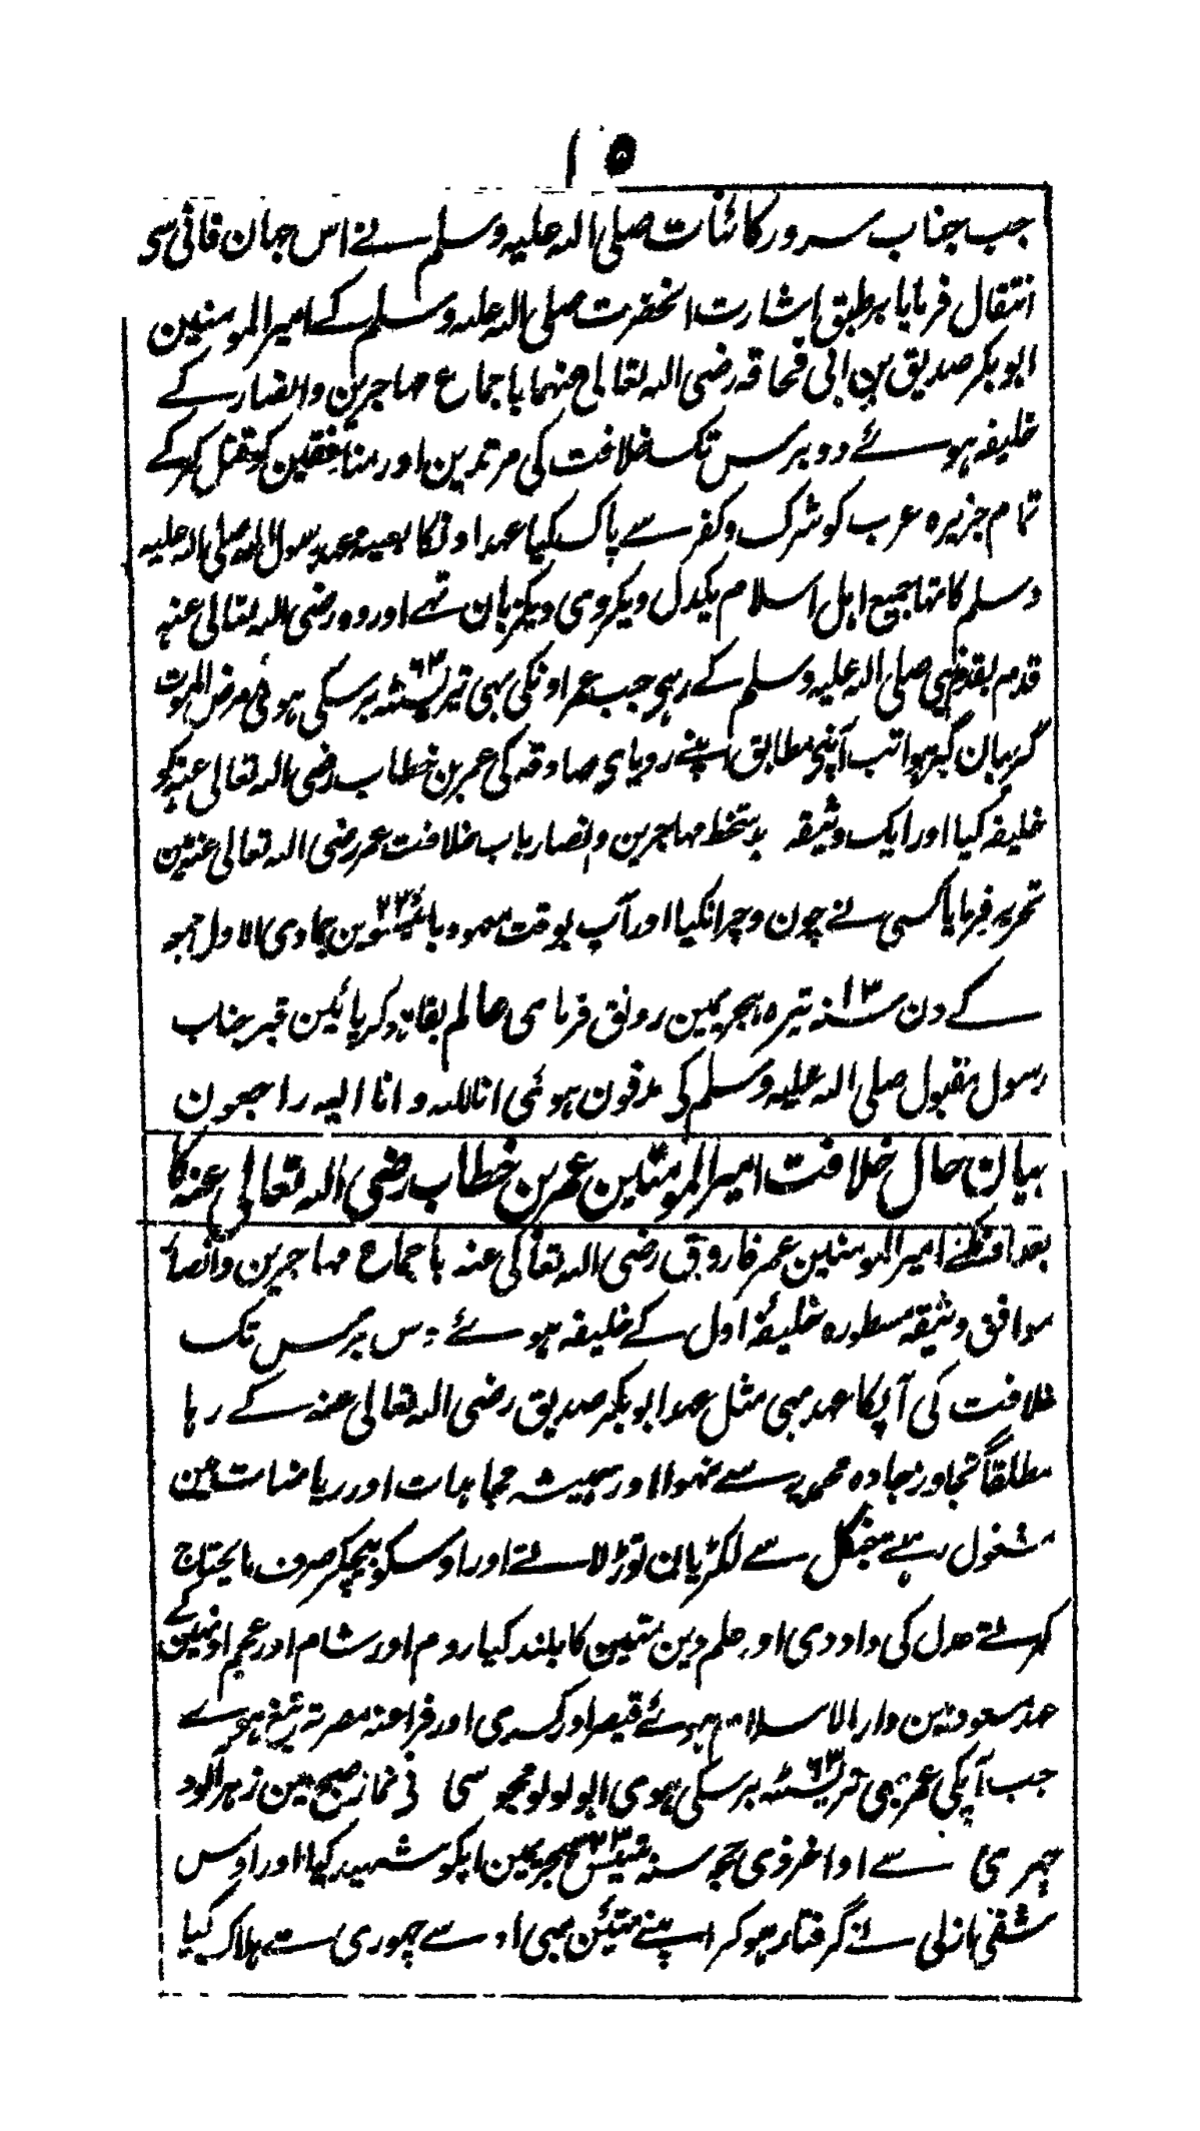 ۱۵
جب جناب سرور کائنات صلی اللہ علیہ وسلم نے اس جہان فانی سی
انتقال فرمایا برطبق اشارت آنحضرت صلی اللہ علیہ وسلم کے امیرالمومنین
ابوبکر صدیق بن ابی قحافہ رضی اللہ تعالی عنہما باجماع مہاجرین وانصار کے
خلیفہ ہوئے دو برس تک خلافت کی مرتدین اور منافقین کو قتل کرکے
تمام جزیرہ عرب کو شرک وکفر سے پاک کیا عہد اونکا بعینہ عہد رسول اللہ صلی اللہ علیہ
وسلم کا تہا جمیع اہل اسلام یکدل ویکروی ویکزبان تہے اور وہ رضی اللہ تعالی عنہ
قدم بقدم نبی صلی اللہ علیہ وسلم کے رہی جب عمر اونکی بہی تریسٹہ ۶۳ برسکی ہوئی مرض الموت
گریبان گیر ہوا تب آپنی مطابق اپنے رویای صادقہ کی عمر بن خطاب رضی اللہ تعالی عنہ کو
خلیفہ کیا اور ایک وثیقہ بدستخط مہاجرین وانصار باب خلافت عمر رضی اللہ تعالی عنہ مین
تحریر فرمایا کسی نے چون وچرا نکیا اور آپ بوقت معہود بائیسوین ۲۲ جمادی الاول جمعہ
کے دن سنہ ۱۳ تیرہ ہجریمین رونق فرمای عالم بقا ہوکر پائین قبر جناب
رسول مقبول صلی اللہ علیہ وسلم کی مدفون ہوئی انا للہ وانا الیہ راجعون
بیان حال خلافت امیرالمومنین عمر بن خطاب رضی اللہ تعالی عنہ کا
بعد اونکے امیرالمومنین عمر فاروق رضی اللہ تعالی عنہ باجماع مہاجرین وانصار
موافق وثیقہ مسطورہ خلیفۂ اول کے خلیفہ ہوئے دس برس تک
خلافت کی آپکا عہد بہی مثل عہد ابوبکر صدیق رضی اللہ تعالی عنہ کے رہا
مطلقاً تجاوز جادہ محمدیہ سے نہوا اور ہمیشہ مجاہدات اور ریاضات مین
مشغول رہے جنگل سے لکڑیان توڑ لاتے اور اوسکو بیچکر صرف مایحتاج
کرتے عدل کی داد دی اور علم دین متین کا بلند کیا روم اور شام اور عجم اونہین کے
عہد سعود مین دارالاسلام ہوئے قیصر اور کسری اور فراعنہ مصر تہ تیغ ہوے
جب آپکی عمر بہی تریسٹہ ۶۳ برسکی ہوی ابو لولو مجوسی نی نماز صبح مین زہر آلود
چہری سے اواخر ذی حجہ سنہ ۲۳ تیئیس ہجریمین آپکو شہید کیا اور اوس
شقی ازلی نے گرفتار ہوکر اپنے تئین بہی اوسے چہوری سے ہلاک کیا